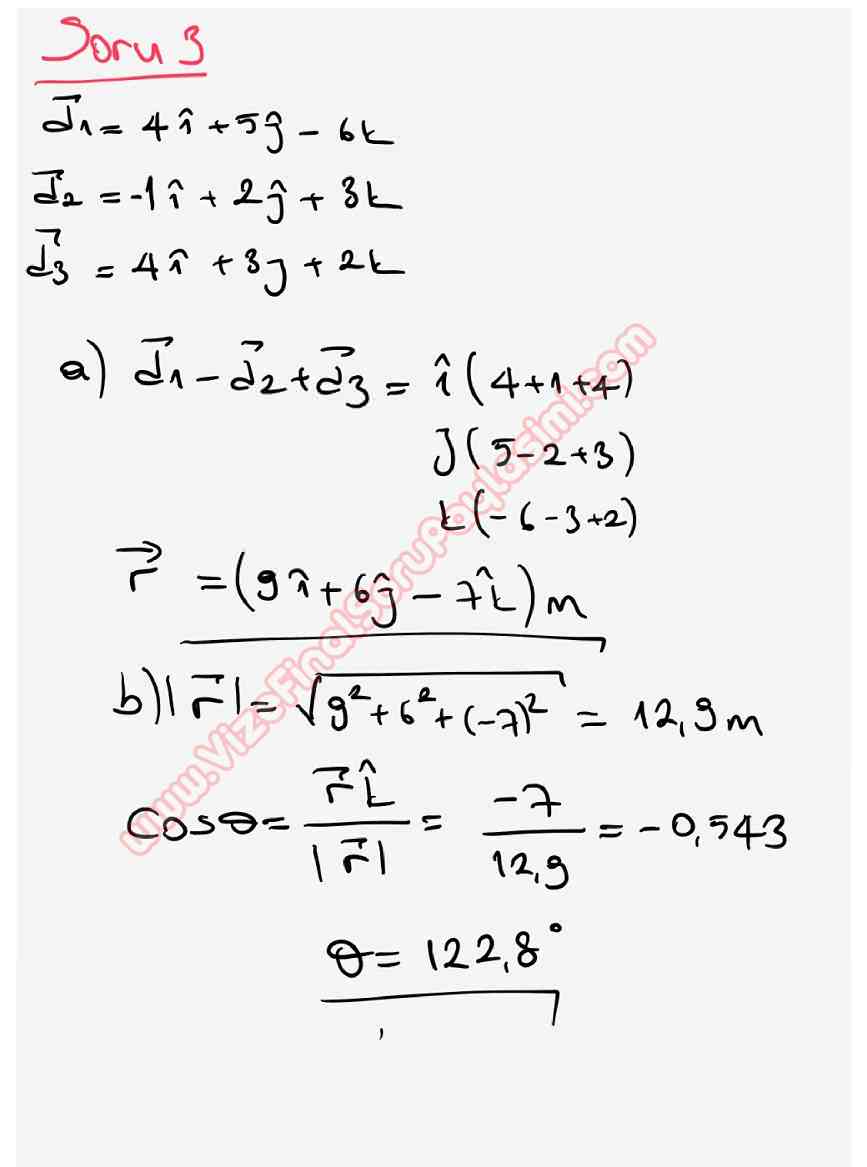 Soru 3
d⃗1 = 4î + 5ĵ - 6k
d⃗2 = -1î + 2ĵ + 3k
d⃗3 = 4î + 3j + 2k
a) d⃗1 - d⃗2 + d⃗3 = î(4+1+4)
J(5-2+3)
k(-6-3+2)
r⃗ = (9î + 6ĵ - 7k̂)m
b) |r⃗| = √(9² + 6² + (-7)²) = 12,9 m
Cosθ = r⃗k̂ / |r⃗| = -7 / 12,9 = -0,543
θ = 122,8°
www.VizeFinalSoruPaylasimi.com